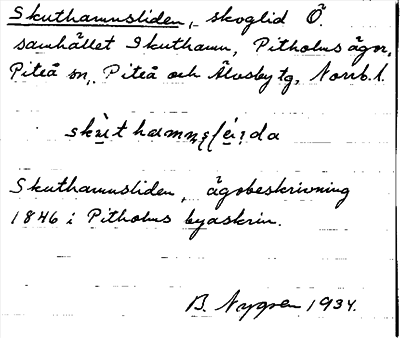 Skuthamnsliden, skoglid Ö.
samhället Skuthamn, Pitholms ägor,
Piteå sn, Piteå och Älvsby tg, Norrb. l.
Skuthamnsliden, ägobeskrivning
1846 i Pitholms byaskrin.
B. Nygren 1934.